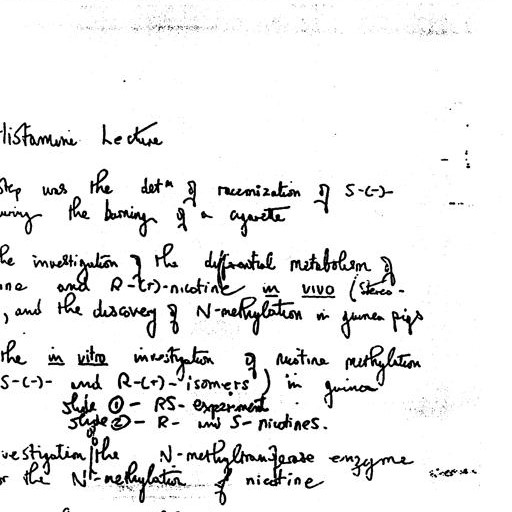 Histamine Lecture
step was the detn of racemization of S-(-)-
during the burning of a cigarette
the investigation of the differential metabolism of
and R-(+)-nicotine in vivo (Stereo-
, and the discovery of N-methylation in guinea pigs
the in vitro investigation of nicotine methylation
S-(-)- and R-(+)-isomers) in guinea
slide ① - RS- experiment
slide ② - R- and S- nicotines.
investigation of the N-methyltransferase enzyme
the N'-methylation of nicotine